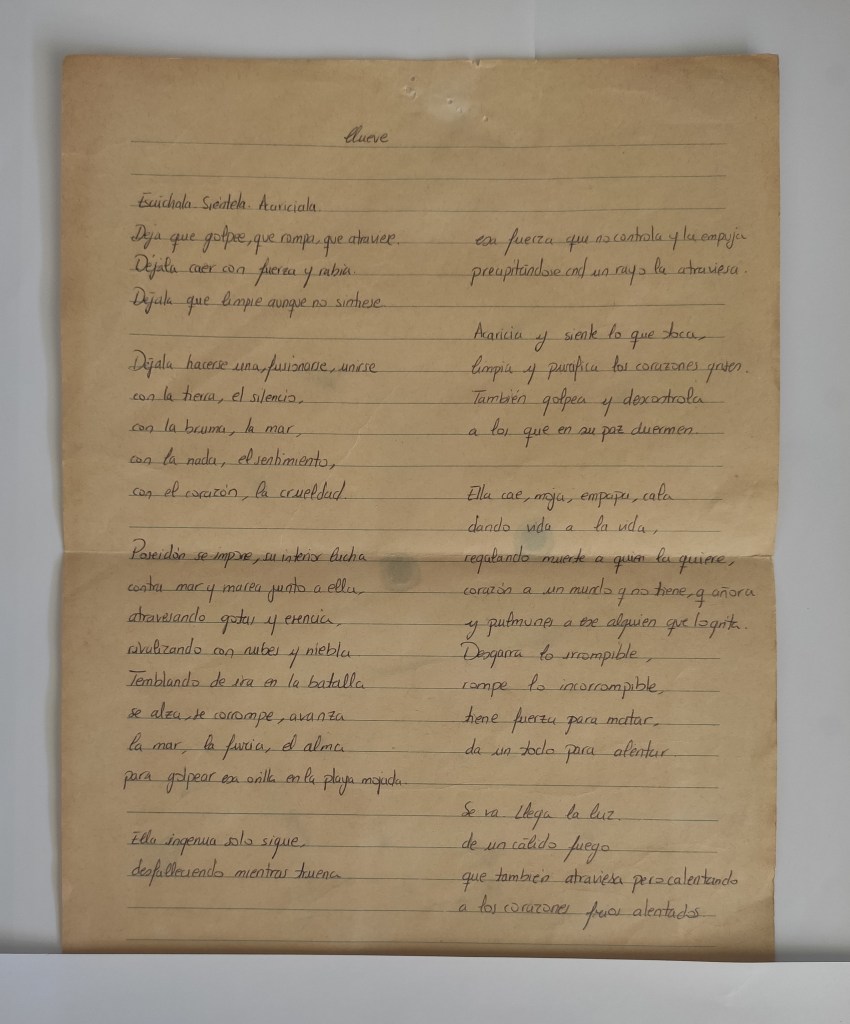 Llueve
Escúchala. Siéntela. Acaríciala.
Deja que golpee, que rompa, que atraviese.
Déjala caer con fuerza y rabia.
Déjala que limpie aunque no
Déjala hacerse una, fusionarse, unirse
con la tierra, el silencio,
con la bruma, la mar,
con la nada, el sentimiento,
con el corazón, la crueldad.
Poseidón se impone, su interior lucha
contra mar y marea junto a ella,
atravesando gotas y esencia,
rivalizando con nubes y niebla
Temblando de ira en la batalla
se alza, se corrompe, avanza
la mar, la furia, el alma
para golpear esa orilla en la playa mojada.
Ella ingenua solo sigue,
desfalleciendo mientras truena
esa fuerza que no controla y la empuja
precipitándose un rayo la atraviesa.
Acaricia y siente lo que toca,
limpia y purifica los corazones
También golpea y descontrola
a los que en su paz duermen.
Ella cae, moja, empapa, cala
dando vida a la vida,
regalando muerte a quien la quiere,
corazón a un mundo q no tiene, q añora
y pulmones a ese alguien que lo grita.
Desgarra lo irrompible,
rompe lo incorrompible,
tiene fuerza para matar,
da un todo para alentar
Se va. Llega la luz.
de un cálido fuego
que también atraviesa pero calentando
a los corazones fríos alentados